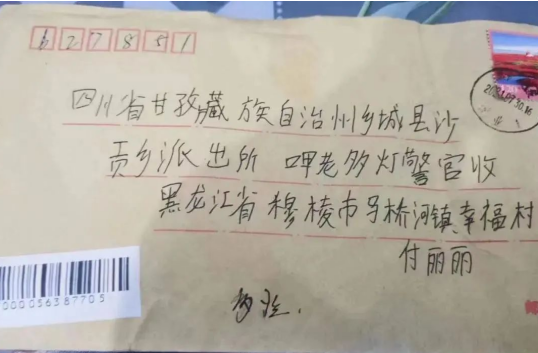 627851
四川省甘孜藏族自治州乡城县沙
贡乡派出所 呷老多灯警官收
黑龙江省穆棱市马桥河镇幸福村
付丽丽